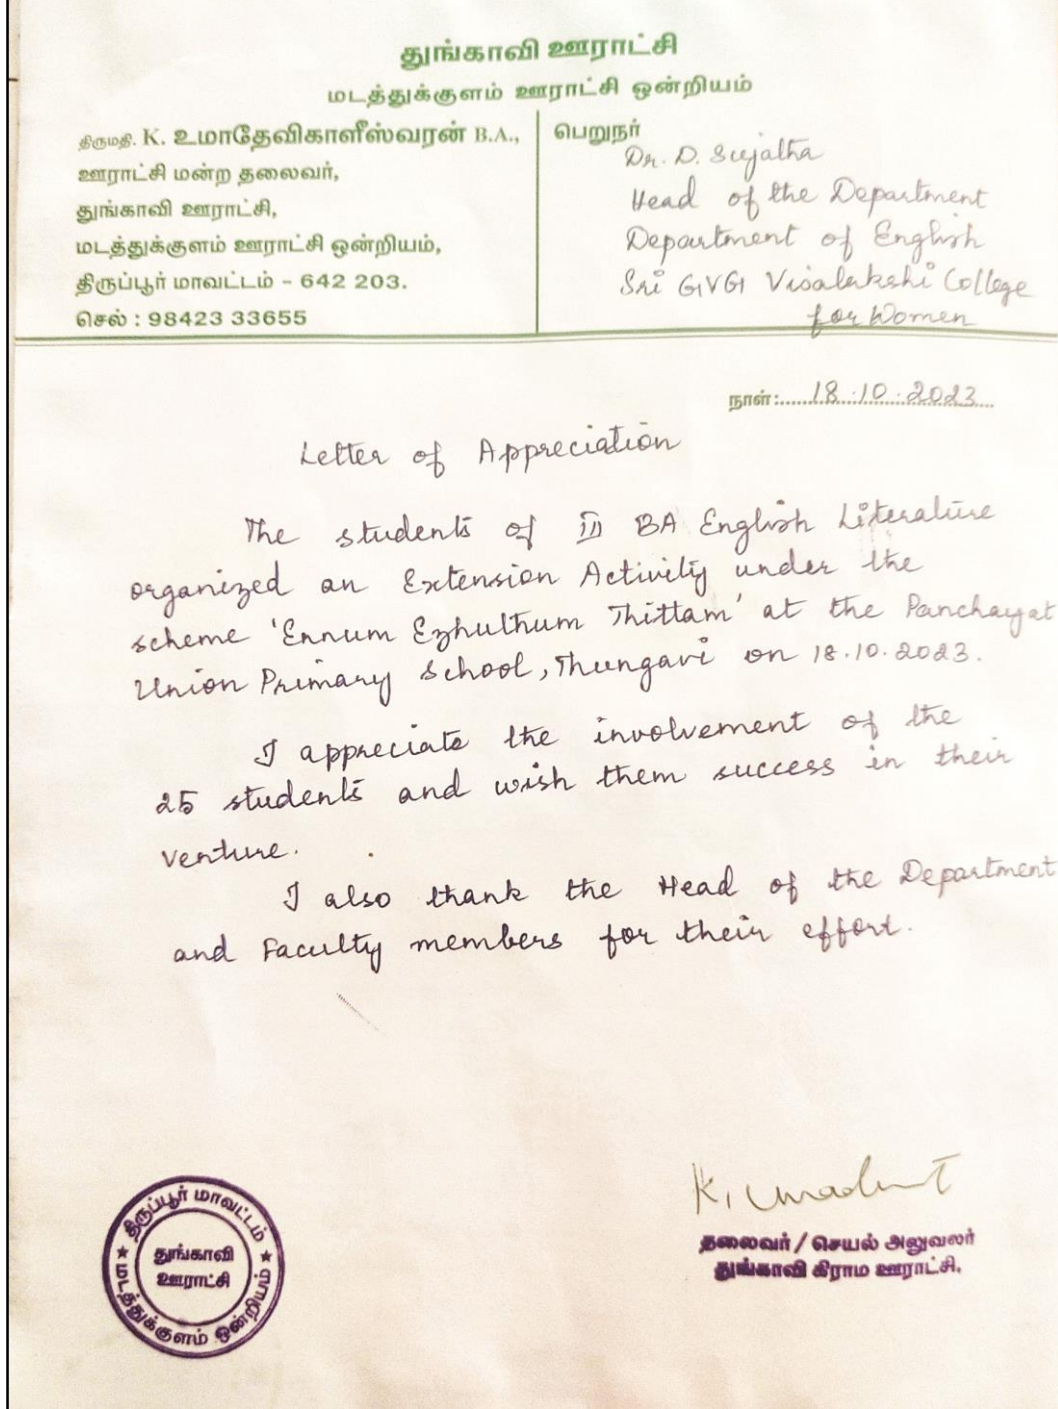 துங்காவி ஊராட்சி
மடத்துக்குளம் ஊராட்சி ஒன்றியம்
திருமதி. K. உமாதேவிகாளீஸ்வரன் B.A.,
ஊராட்சி மன்ற தலைவர்,
துங்காவி ஊராட்சி,
மடத்துக்குளம் ஊராட்சி ஒன்றியம்,
திருப்பூர் மாவட்டம் - 642 203.
செல் : 98423 33655
பெறுநர்
Dr. D. Sujatha
Head of the Department
Department of English
Sri GVG Visalakshi College
for Women
நாள்:......18.10.2023...
Letter of Appreciation
The students of III BA English Literature
organized an Extension Activity under the
scheme 'Ennum Ezhulthum Thittam' at the Panchayat
Union Primary School, Thungavi on 18.10.2023.
I appreciate the involvement of the
25 students and wish them success in their
venture.
I also thank the Head of the Department
and Faculty members for their effort.
தலைவர் / செயல் அலுவலர்
துங்காவி கிராம ஊராட்சி.
திருப்பூர் மாவட்டம்
துங்காவி
ஊராட்சி
மடத்துக்குளம் ஒன்றியம்